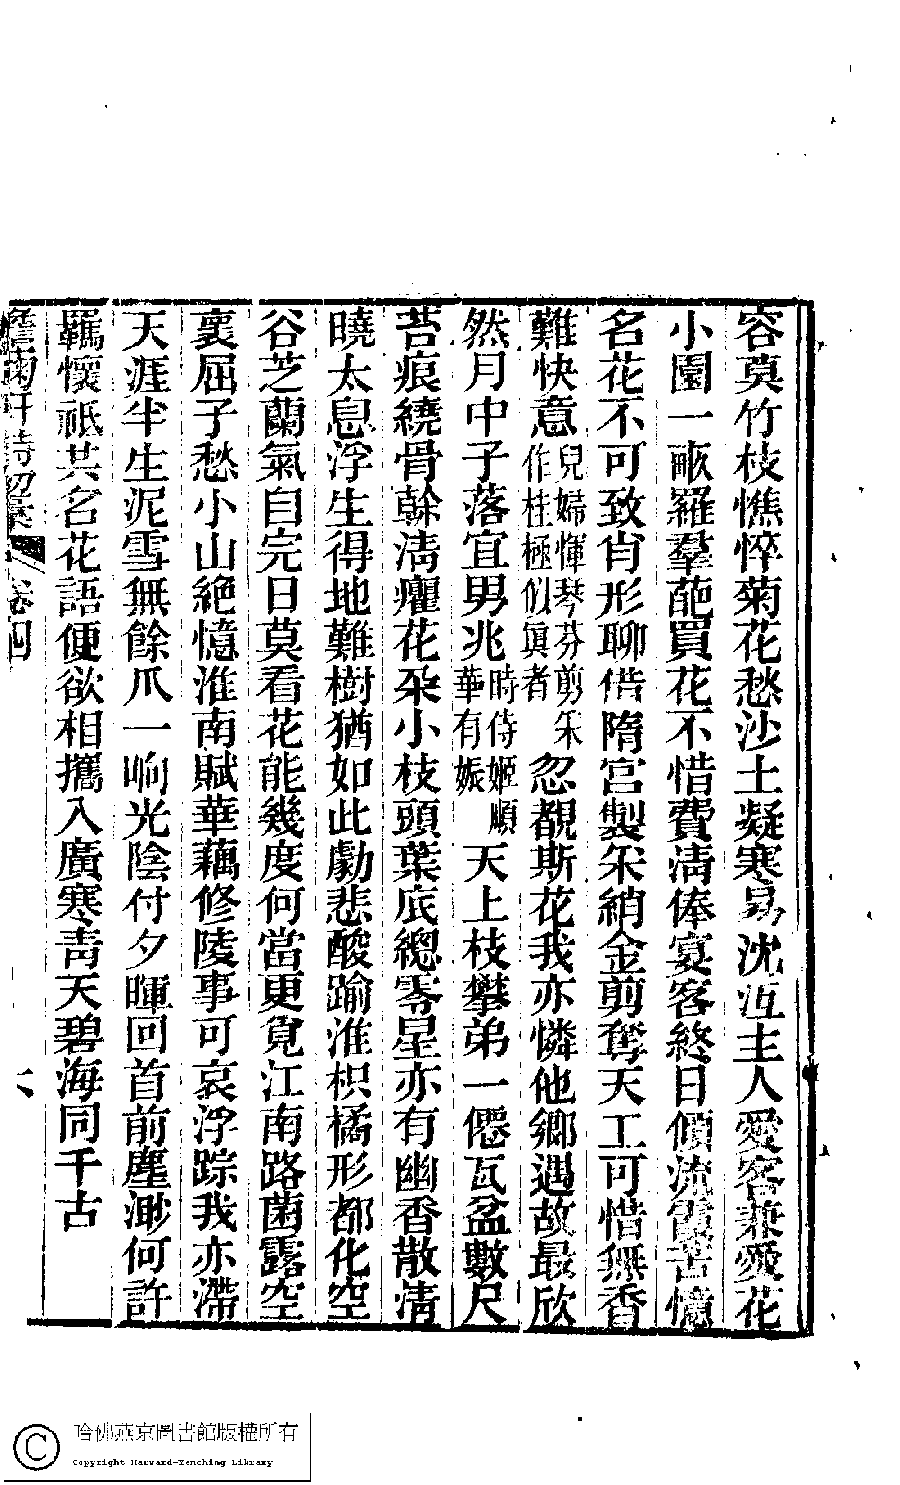 容莫竹枝憔悴菊花愁沙土凝寒易沈沍主人愛客兼愛花
小園一畝羅羣葩買花不惜費淸俸宴客終日傾流霞苦憶
名花不可致肖形聊借隋宮製朵綃金剪奪天工可惜無香
難快意兒婦惲琴芬剪朵作桂極似眞者忽覩斯花我亦憐他鄉遇故最欣
然月中子落宜男兆時侍姬順華有娠天上枝攀弟一僊瓦盆數尺
苔痕繞骨幹淸癯花朶小枝頭葉底總零星亦有幽香散淸
曉太息浮生得地難樹猶如此勵悲酸踰淮枳橘形都化空
谷芝蘭氣自完日莫看花能幾度何當更覓江南路菌露空
裏屈子愁小山絶憶淮南賦華藕修陵事可哀浮踪我亦滯
天涯半生泥雪無餘爪一晌光陰付夕暉回首前塵渺何許
羈懷祇共名花語便欲相攜入廣寒靑天碧海同千古
菊軒詩初稾 卷四 六
哈佛燕京圖書館版權所有
Copyright Harvard-Yenching Library